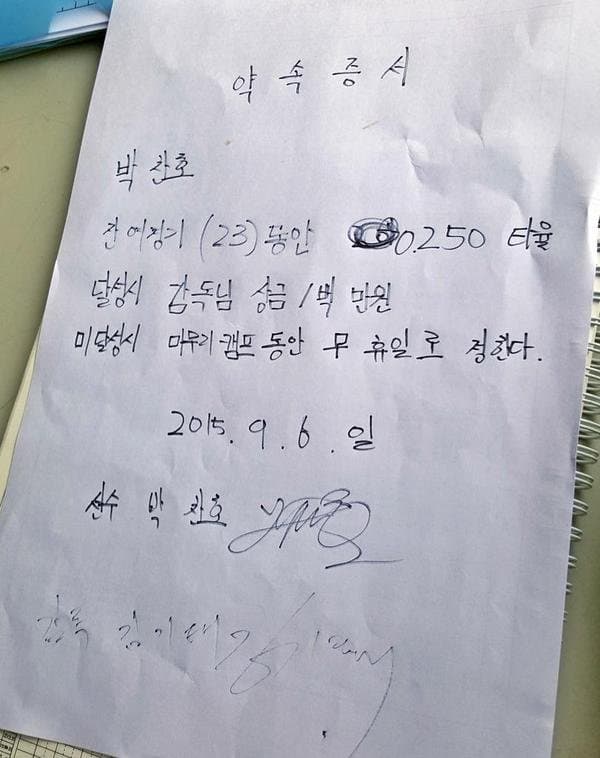 약속증서
박찬호
잔여경기 (23)동안 0.250 타율
달성시 감독님 상금 1백 만원
미달성시 마무리캠프 동안 무 휴일로 정한다.
2015. 9. 6. 일
선수 박찬호
감독 김기태